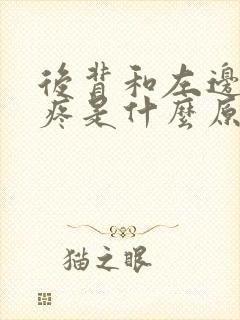 後背和左邊
疼是什麼原
猫之眼